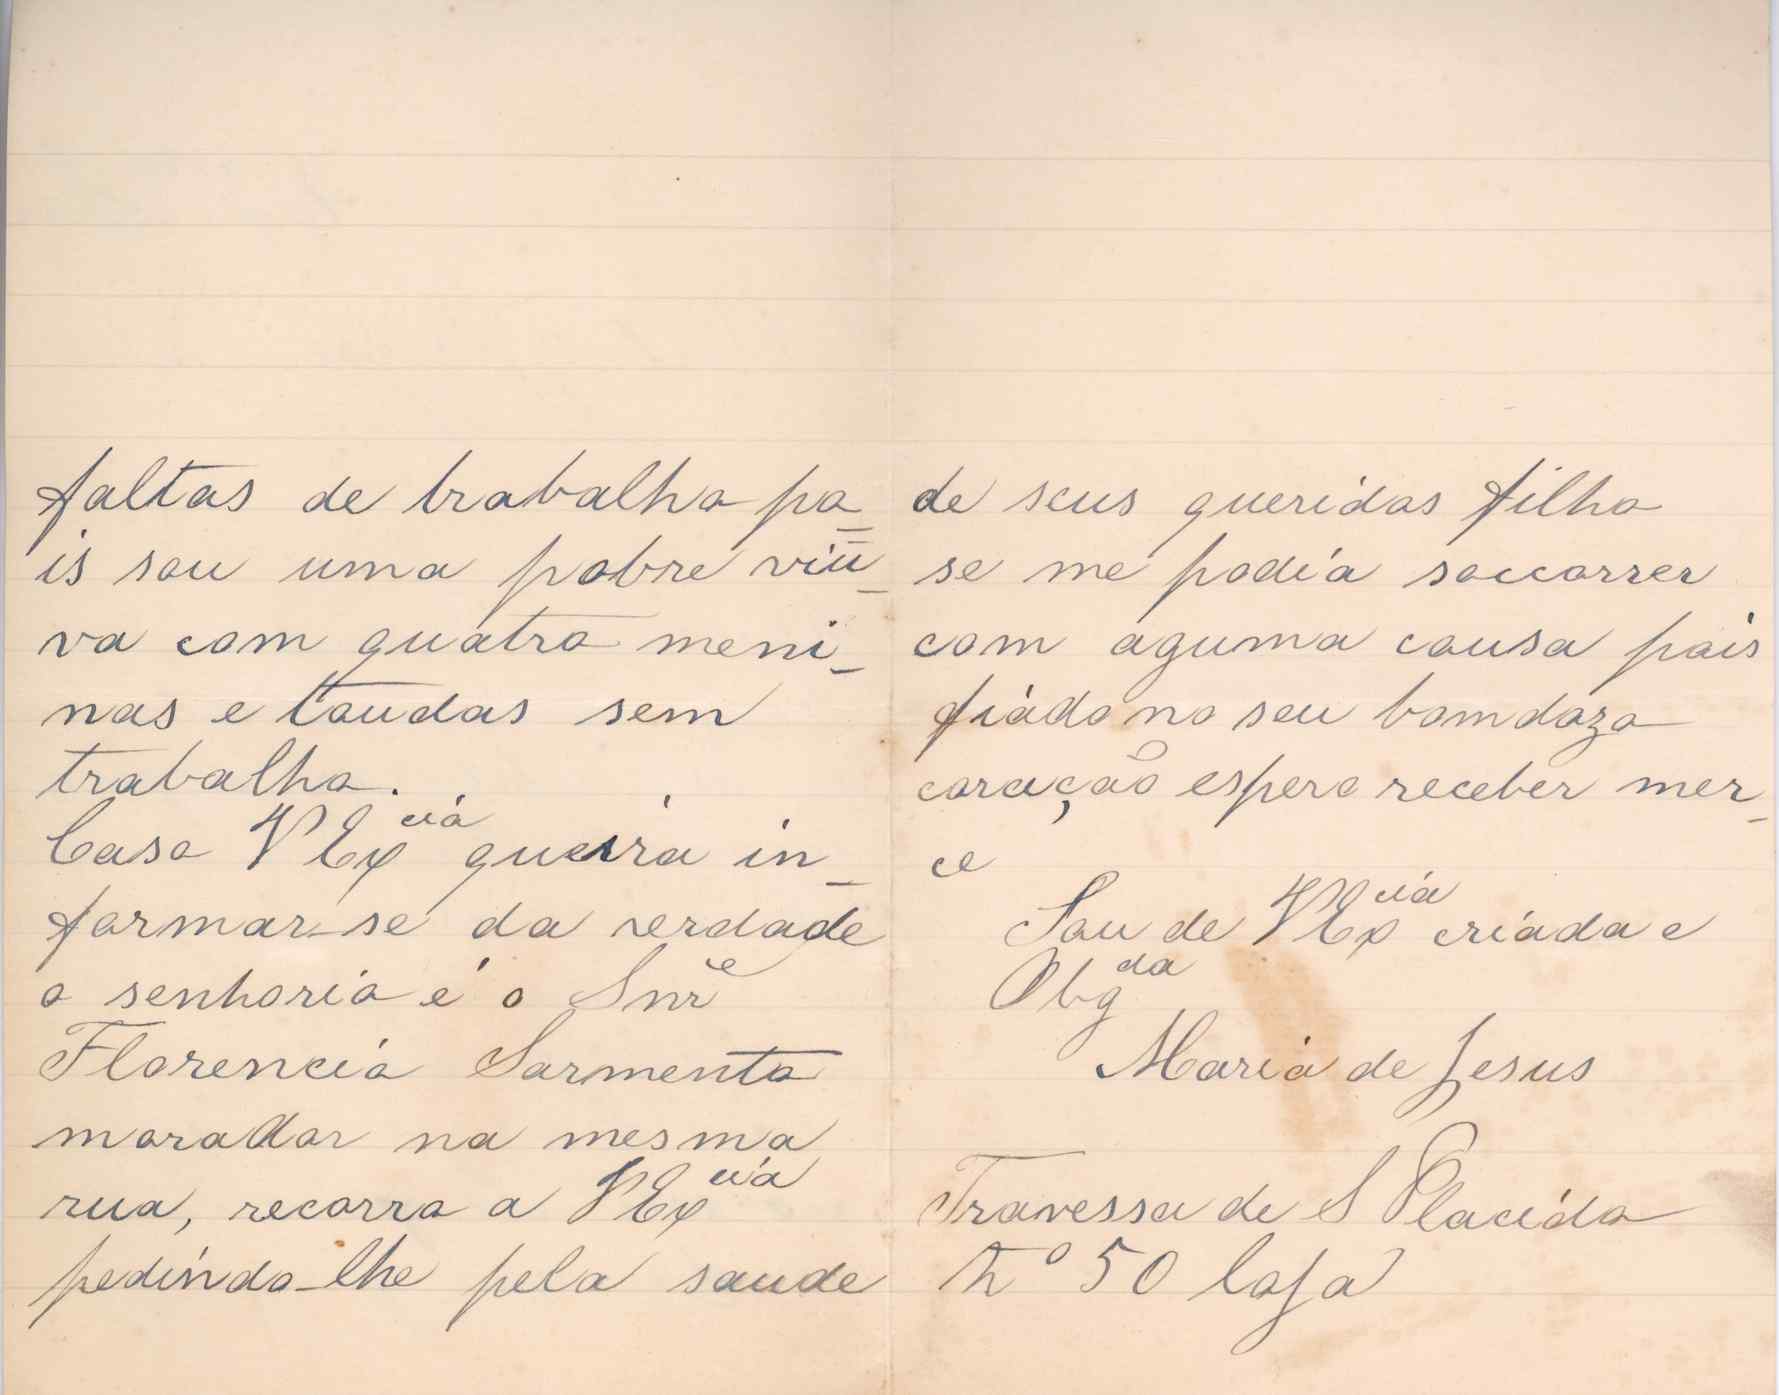 faltas de trabalho po_
is sou uma pobre viu_
va com quatro meni_
nas e toudas sem
trabalho.
Caso V Ex^cia queira in_
formar-se da verdade
o senhorio é o Snr^e
Florencio Sarmento
morador na mesma
rua, recorro a V Ex^cia
pedindo-lhe pela saude
de seus queridos filho
se me podia soccorrer
com aguma cousa pois
fiádo no seu bomdozo
coração espero receber mer_
ce
Sou de V Ex^cia criada e
Obg^da
Maria de Jesus
Travessa de S Placido
Nº 50 loja